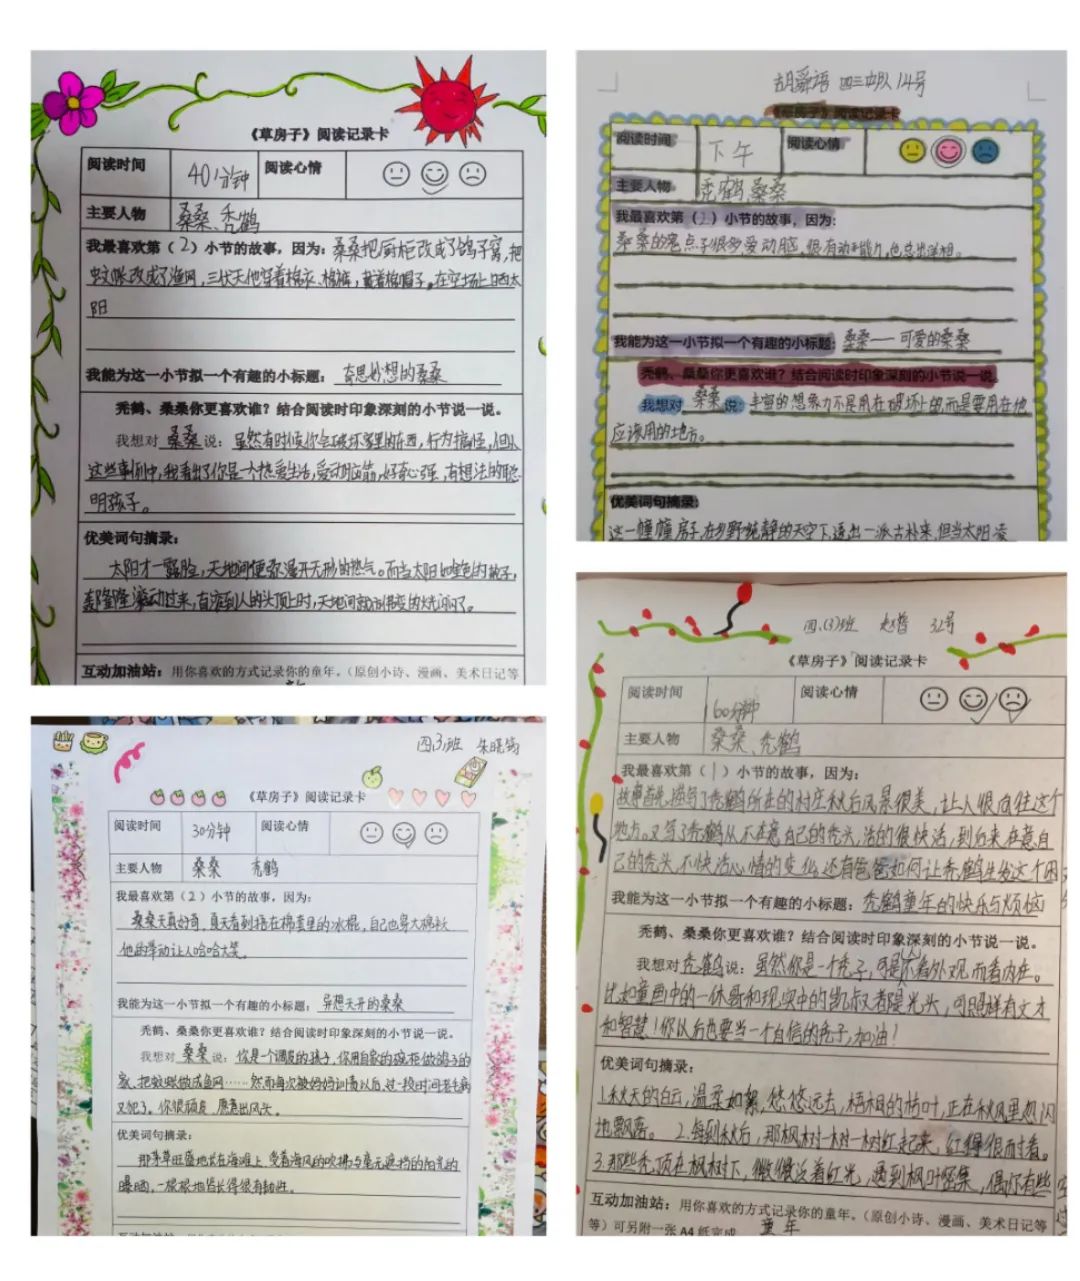 《草房子》阅读记录卡
阅读时间 40分钟 阅读心情
主要人物 桑桑、秃鹤
我最喜欢第（2）小节的故事，因为：桑桑把厨柜改成了鸽子窝，把
蚊帐改成了渔网，三伏天他穿着棉衣、棉裤，戴着棉帽子。在空场上晒太
阳
我能为这一小节拟一个有趣的小标题：奇思妙想的桑桑
秃鹤、桑桑你更喜欢谁？结合阅读时印象深刻的小节说一说。
我想对 桑桑 说：虽然有时候你会破坏家里的东西，行为搞怪，但从
这些事例中，我看出了你是一个热爱生活，爱动脑筋，好奇心强，有想法的聪
明孩子。
优美词句摘录：
太阳才一露脸，天地间便弥漫开无形的热气。而当太阳如金色的轮子，
轰隆隆滚动过来，直滚到人的头顶上时，天地间就
互动加油站：用你喜欢的方式记录你的童年。（原创小诗、漫画、美术日记等
胡舜语 四三中队 14号
《草房子》阅读记录卡
阅读时间 下午 阅读心情
主要人物 秃鹤、桑桑
我最喜欢第（2）小节的故事，因为：
桑桑的鬼点子很多，爱动脑，很有动手能力，也总出洋相。
我能为这一小节拟一个有趣的小标题：桑桑——可爱的桑桑
秃鹤、桑桑你更喜欢谁？结合阅读时印象深刻的小节说一说。
我想对 桑桑 说：丰富的想象力不是用在破坏上的，而是要用在他
应该用的地方。
优美词句摘录：
这一幢幢房子，在乡野纯静的天空下，透出一派古朴来，但当太阳凌
四3班
《草房子》阅读记录卡
阅读时间 30分钟 阅读心情
主要人物 桑桑 秃鹤
我最喜欢第（2）小节的故事，因为：
桑桑天真好奇，夏天看到捂在棉套里的冰棍，自己也穿大棉袄
他的举动让人哈哈大笑。
我能为这一小节拟一个有趣的小标题：异想天开的桑桑
秃鹤、桑桑你更喜欢谁？结合阅读时印象深刻的小节说一说。
我想对 桑桑 说：你是一个调皮的孩子，你用自家的碗柜做鸽子的
家、把蚊帐做成鱼网……然而每次被妈妈训责以后，过一段时间老毛病
又犯了。你很顽皮 愿意出风头。
优美词句摘录：
那茅草旺盛地长在海滩上，受着海风的吹拂与毫无遮挡的阳光的
曝晒，一根根地皆长得很有韧性。
四、(3)班 赵 32号
《草房子》阅读记录卡
阅读时间 60分钟 阅读心情
主要人物 桑桑、秃鹤
我最喜欢第（1）小节的故事，因为：
故事首先描写了秃鹤所在的村庄秋后风景很美，让人很向往这个
地方。又写了秃鹤从不在意自己的秃头，活的很快活，到后来在意自
己的秃头，不快活心情的变化，还有爸爸如何让秃鹤生发这个困
我能为这一小节拟一个有趣的小标题：秃鹤童年的快乐与烦恼
秃鹤、桑桑你更喜欢谁？结合阅读时印象深刻的小节说一说。
我想对 秃鹤 说：虽然你是一个秃子，可是人不看外观，而看内在。
比如童画中的一休哥和现实中的凯叔叉着陧光头，可照样有文才
和智慧！你以后也要当一个自信的秃子，加油！
优美词句摘录：
1.秋天的白云，温柔如絮，悠悠远去，梧桐的杨叶，正在秋风里忽闪
地飘落。 2.每到秋后，那枫树一树一树红起来，红得很耐看。
3.那些秃顶在枫树下，微微泛着红光，遇到枫叶密集，偶尔有些
互动加油站：用你喜欢的方式记录你的童年。（原创小诗、漫画、美术日记等
等）可另附一张 A4 纸完成 童年